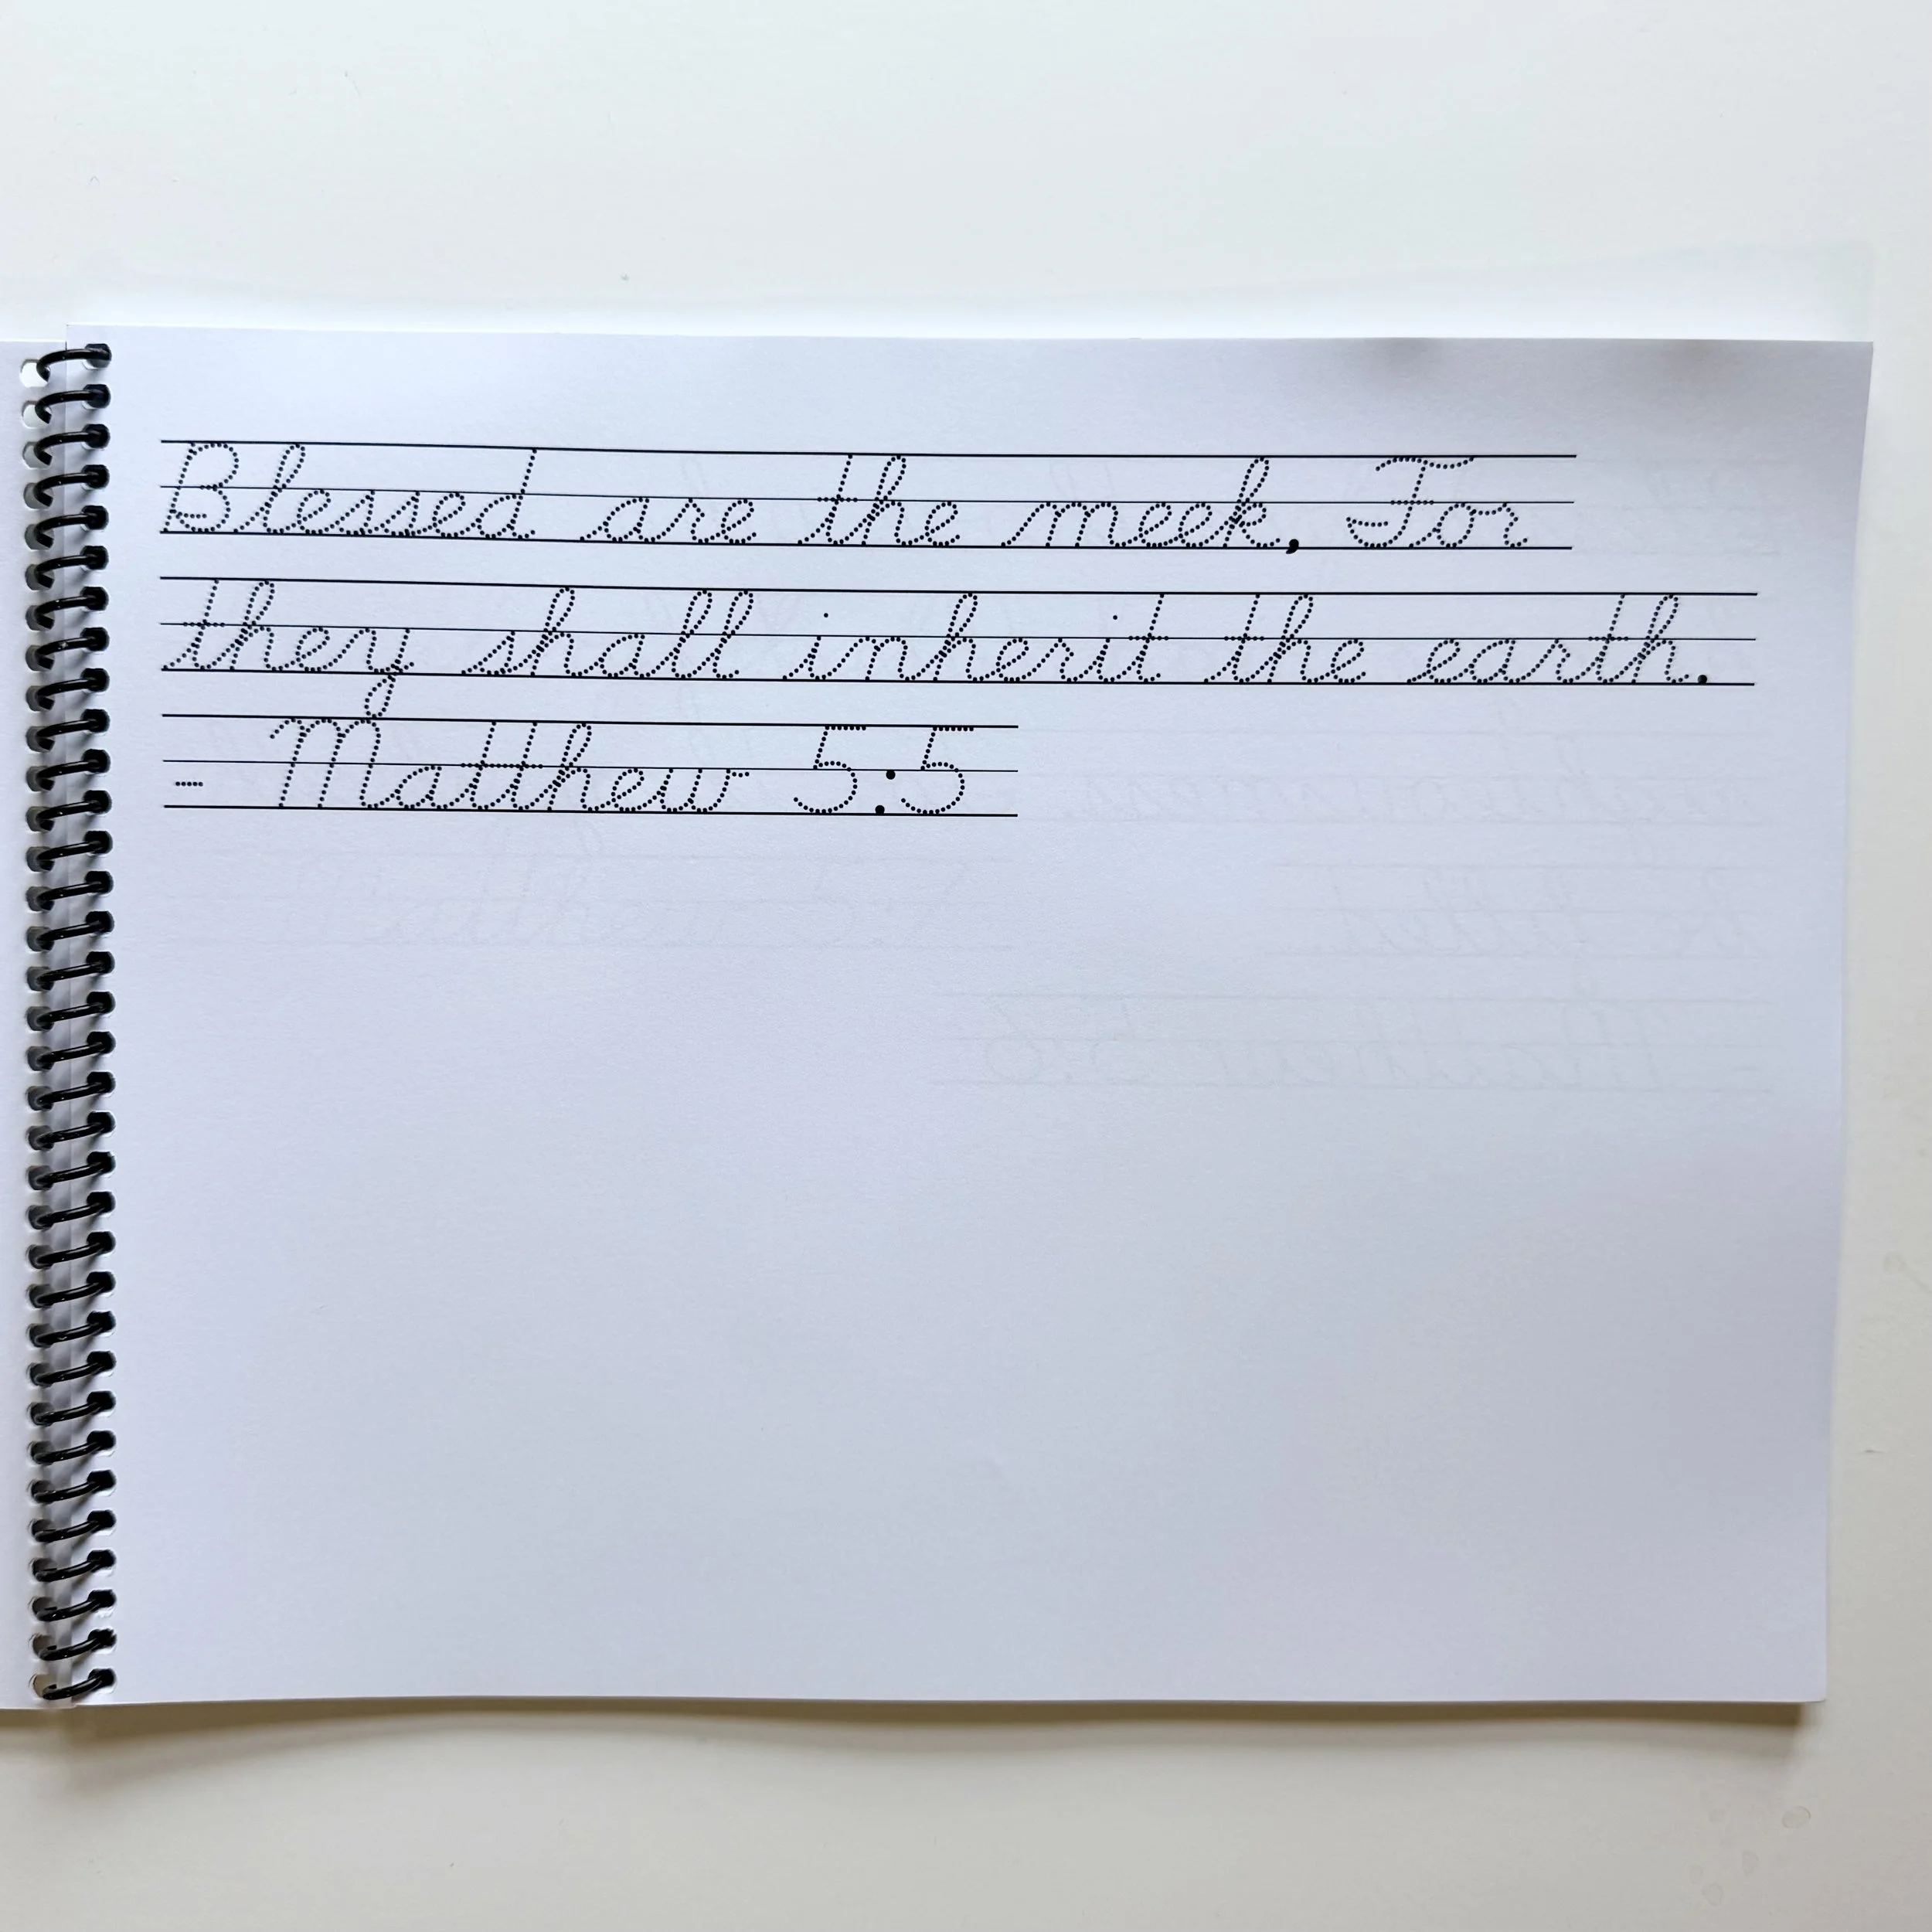 Blessed are the meek, For
they shall inherit the earth.
- Matthew 5:5